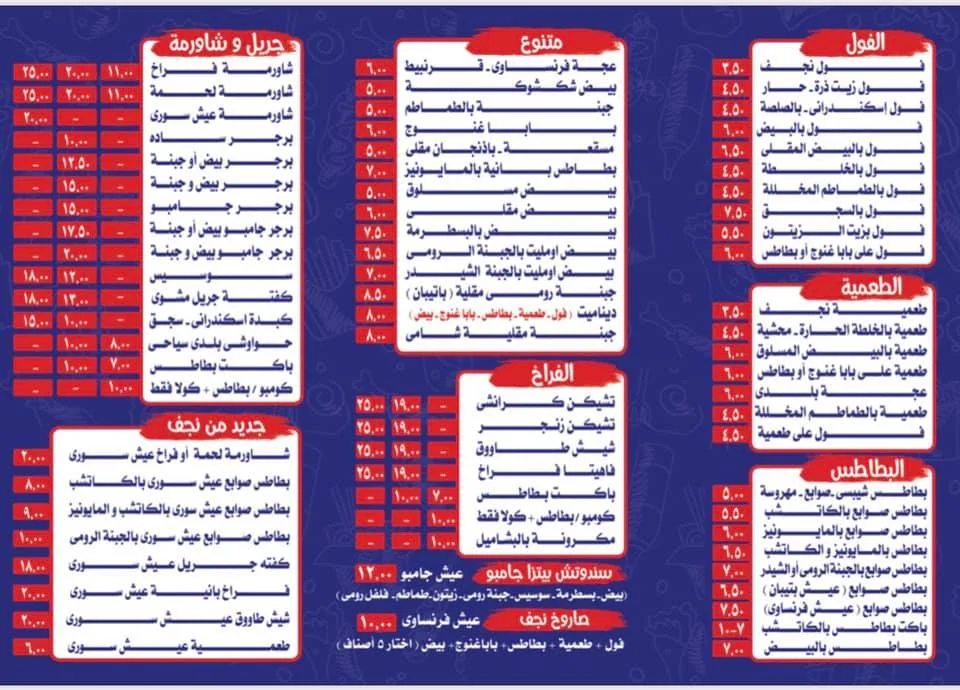 الفول
فول نجف ٣,٥٠
فول زيت ذرة - حار ٤,٥٠
فول إسكندرانى - بالصلصة ٤,٥٠
فول بالبيض ٦,٠٠
فول بالبيض المقلى ٦,٥٠
فول بالخلطة ٤,٥٠
فول بالطماطم المخللة ٤,٥٠
فول بالسجق ٧,٥٠
فول بزيت الزيتون ٥,٥٠
فول على بابا غنوج أو بطاطس ٦,٠٠
الطعمية
طعمية نجف ٣,٥٠
طعمية بالخلطة الحارة - محشية ٤,٥٠
طعمية بالبيض المسلوق ٦,٠٠
طعمية على بابا غنوج أو بطاطس ٦,٠٠
عجة بلدى ٦,٠٠
طعمية بالطماطم المخللة ٤,٥٠
فول على طعمية ٤,٥٠
البطاطس
بطاطس شيبسى - صوابع - مهروسة ٥,٠٠
بطاطس صوابع بالكاتشب ٥,٥٠
بطاطس صوابع بالمايونيز ٦,٠٠
بطاطس بالمايونيز و الكاتشب ٦,٥٠
بطاطس صوابع بالجبنة الرومى أو الشيدر ٧,٠٠
بطاطس صوابع (عيش بتيبان) ٦,٥٠
بطاطس صوابع (عيش فرنساوى) ٧,٥٠
باكت بطاطس بالكاتشب ٧-١٠
بطاطس بالبيض ٧,٠٠
متنوع
عجة فرنساوى - قرنبيط ٦,٠٠
بيض شكشوكة ٥,٠٠
جبنة بالطماطم ٥,٠٠
بابا غنوج ٦,٠٠
مسقعة - باذنجان مقلى ٥,٠٠
بطاطس بانية بالمايونيز ٧,٠٠
بيض مسلوق ٥,٠٠
بيض مقلى ٦,٠٠
بيض بالبسطرمة ٧,٥٠
بيض اومليت بالجبنة الرومى ٦,٥٠
بيض اومليت بالجبنة الشيدر ٧,٠٠
جبنة رومى مقلية (باتيبان) ٨,٥٠
ديناميت (فول - طعمية - بطاطس - بابا غنوج - بيض) ٨,٠٠
جبنة مقلية شامى ٨,٠٠
الفراخ
تشيكن كرانشى - ١٩,٠٠ ٢٥,٠٠
تشيكن زنجر - ١٩,٠٠ ٢٥,٠٠
شيش طاووق - ١٩,٠٠ ٢٥,٠٠
فاهيتا فراخ - ١٩,٠٠ ٢٥,٠٠
باكت بطاطس ٧,٠٠ ١٠,٠٠ -
كومبو/بطاطس + كولا فقط ١٠,٠٠ - -
مكرونة بالبشاميل ١٠,٠٠ - -
سندوتش بيتزا جامبو عيش جامبو ١٢,٠٠
(بيض - بسطرمة - سوسيس - جبنة رومى - زيتون - طماطم - فلفل رومى)
صاروخ نجف عيش فرنساوى ١٠,٠٠
فول + طعمية + بطاطس + باباغنوج + بيض (اختار ٥ أصناف)
جريل و شاورمة
شاورمة فراخ ١١,٠٠ ٢٠,٠٠ ٢٥,٠٠
شاورمة لحمة ١١,٠٠ ٢٠,٠٠ ٢٥,٠٠
شاورمة عيش سورى - - ٢٠,٠٠
برجر ساده - ١٠,٠٠ -
برجر بيض أو جبنة - ١٢,٥٠ -
برجر بيض و جبنة - ١٥,٠٠ -
برجر جامبو - ١٥,٠٠ -
برجر جامبو بيض أو جبنة - ١٧,٥٠ -
برجر جامبو بيض و جبنة - ٢٠,٠٠ -
سوسيس - ١٢,٠٠ ١٨,٠٠
كفتة جريل مشوى - ١٢,٠٠ ١٨,٠٠
كبدة اسكندرانى - سجق - ١٠,٠٠ ١٥,٠٠
حواوشى بلدى سياحى ٨,٠٠ ١٠,٠٠ -
باكت بطاطس ٧,٠٠ ١٠,٠٠ -
كومبو / بطاطس + كولا فقط ١٠,٠٠ - -
جديد من نجف
شاورمة لحمة أو فراخ عيش سورى ٢٠,٠٠
بطاطس صوابع عيش سورى بالكاتشب ٨,٠٠
بطاطس صوابع عيش سورى بالكاتشب و المايونيز ٩,٠٠
بطاطس صوابع عيش سورى بالجبنة الرومى ١٠,٠٠
كفته جريل عيش سورى ١٨,٠٠
فراخ بانية عيش سورى ٢٠,٠٠
شيش طاووق عيش سورى ٢٠,٠٠
طعمية عيش سورى ٦,٠٠